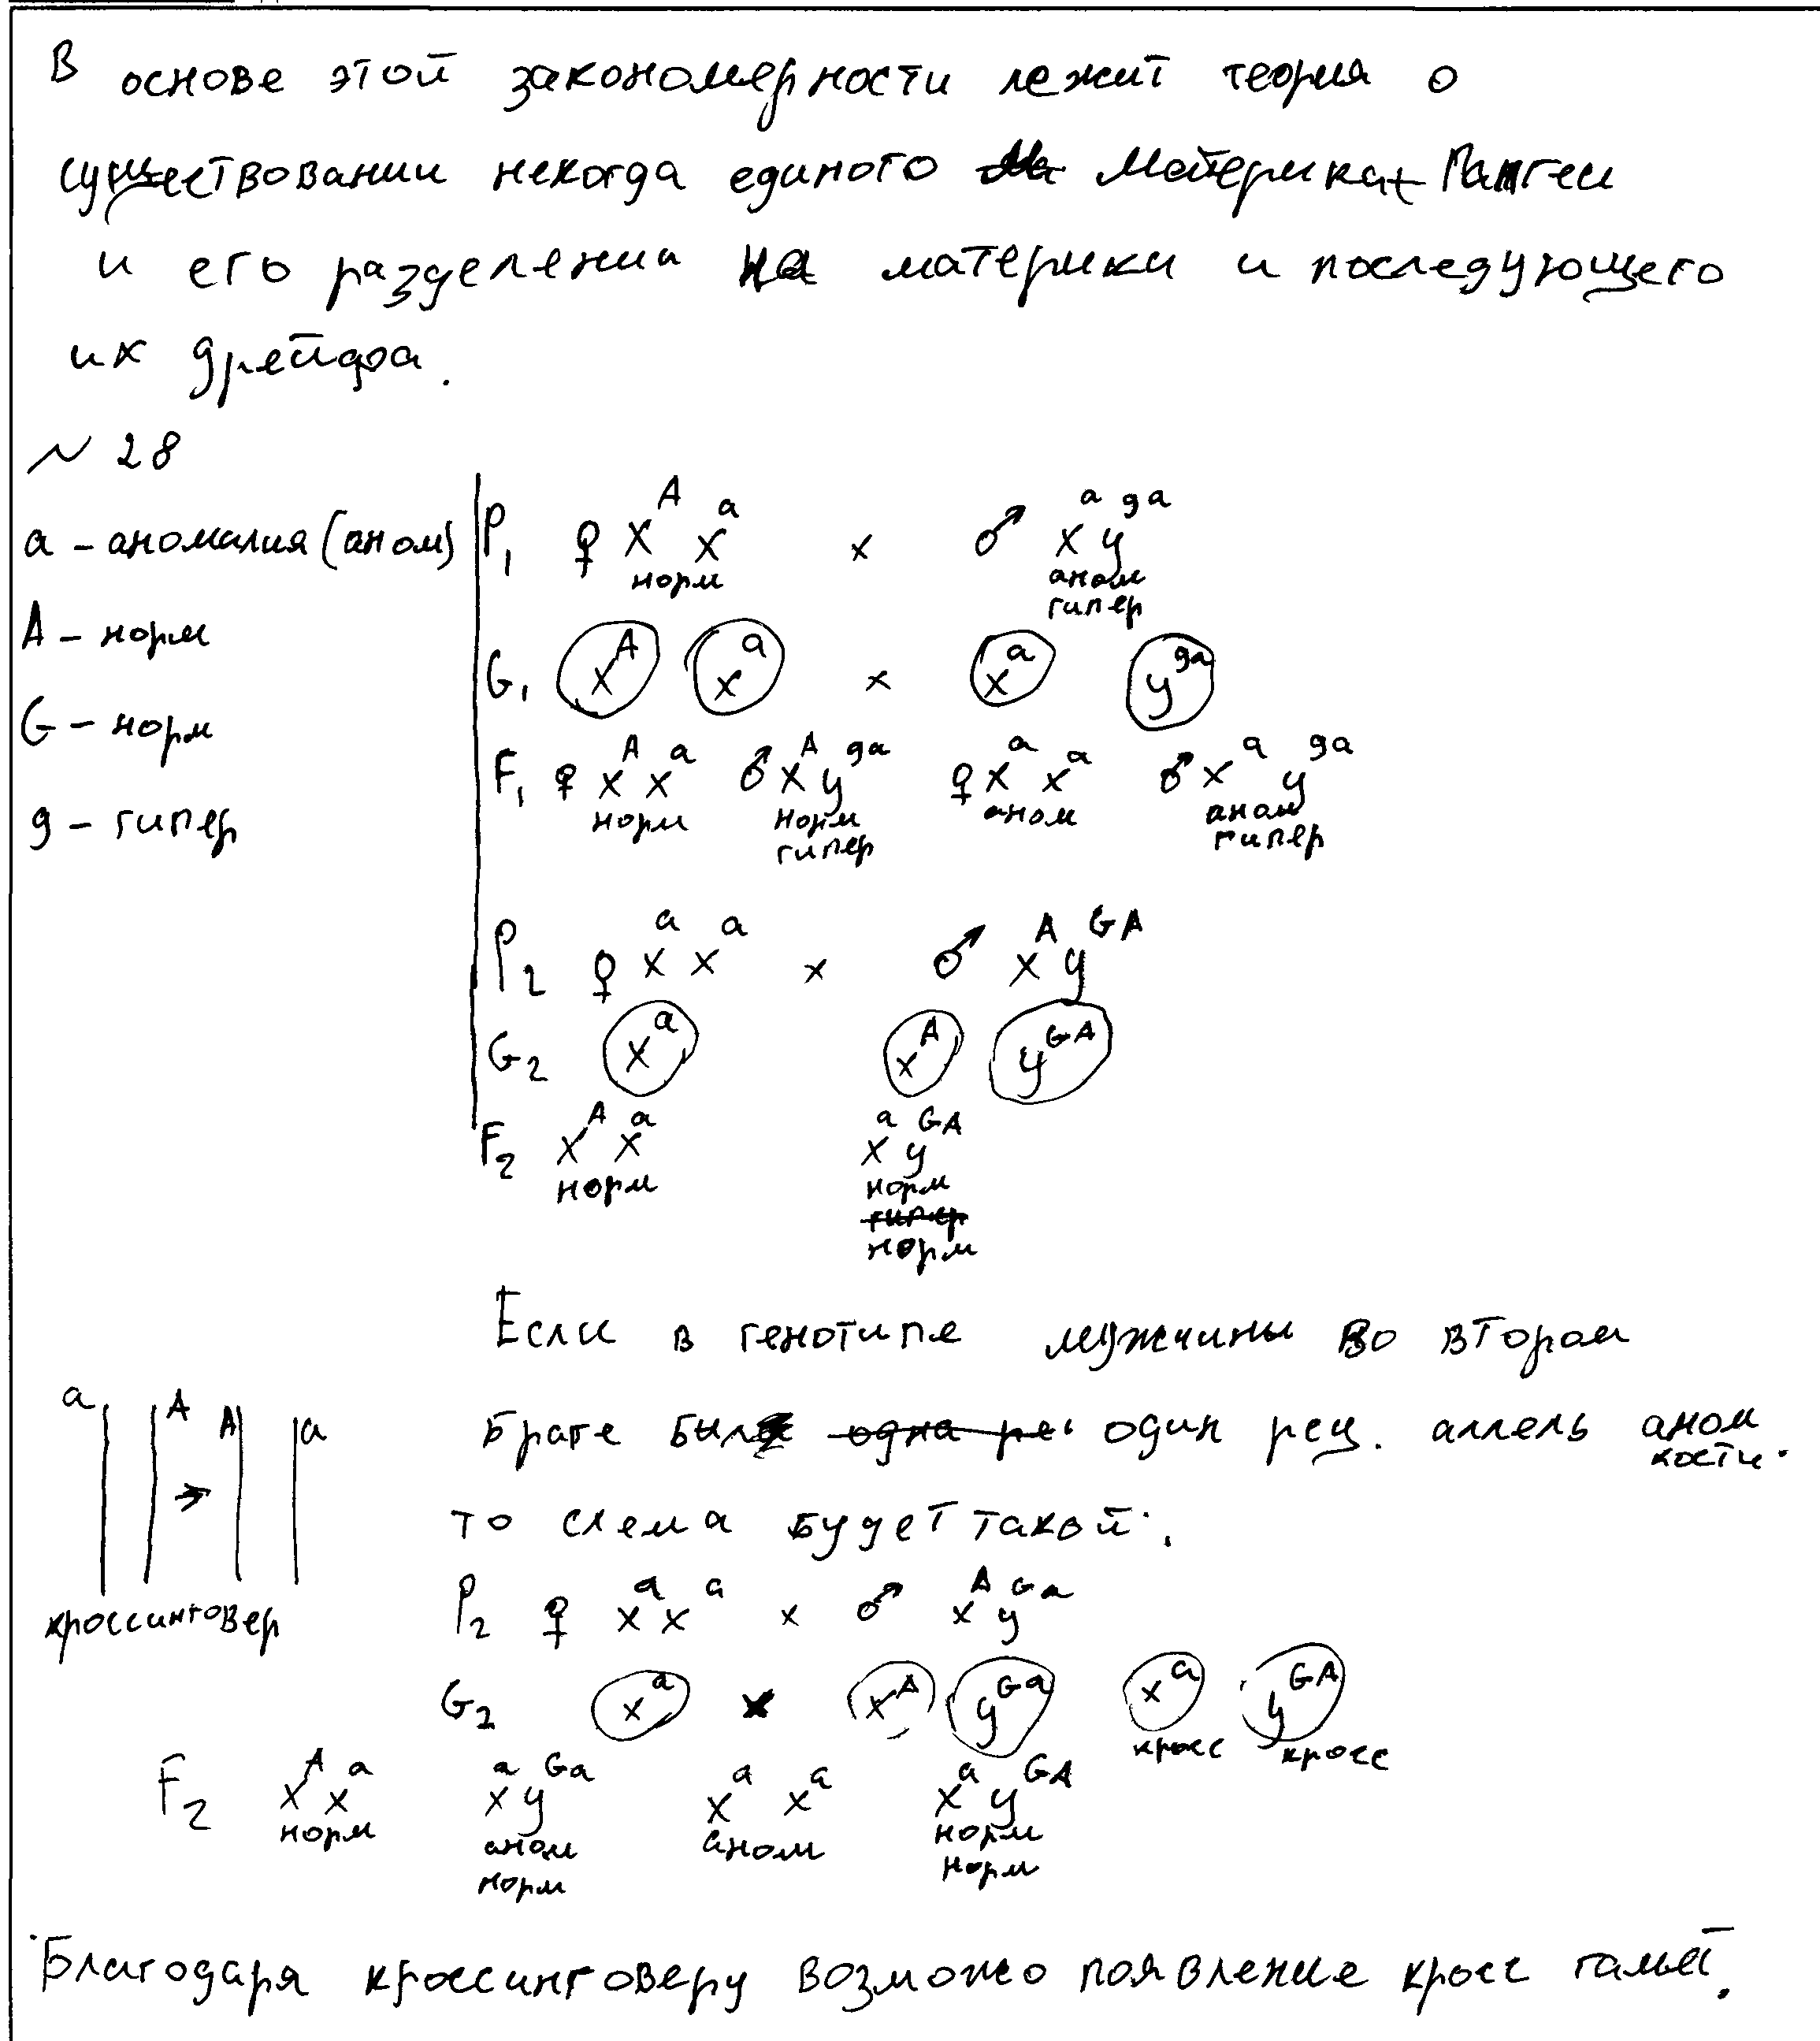 В основе этой закономерности лежит теория о
существовании некогда единого материка Пангеи
и его разделении на материки и последующего
их дрейфа.
№ 28
а – аномалия (аном)
А – норм
G – норм
g – гипер
P₁ ♀ Xᴬ Xᵃ × ♂ Xᵃ Yᵍᵃ
норм аном
гипер
G₁ Xᴬ Xᵃ × Xᵃ Yᵍᵃ
F₁ ♀ Xᴬ Xᵃ ♂ Xᴬ Yᵍᵃ ♀ Xᵃ Xᵃ ♂ Xᵃ Yᵍᵃ
норм норм аном аном
гипер гипер
P₂ ♀ Xᵃ Xᵃ × ♂ Xᴬ Yᴳᴬ
G₂ Xᵃ Xᴬ Yᴳᴬ
F₂ Xᴬ Xᵃ Xᵃ Yᴳᴬ
норм норм
гипер
норм
Если в генотипе мужчины во втором
браке был одна ре один рец. аллель аном
кости.
то схема будет такой:
a A → A a
кроссинговер
P₂ ♀ Xᵃ Xᵃ × ♂ Xᴬ Yᴳᵃ
G₂ Xᵃ × Xᴬ Yᴳᵃ Xᵃ Yᴳᴬ
кросс кросс
F₂ Xᴬ Xᵃ Xᵃ Yᴳᵃ Xᵃ Xᵃ Xᵃ Yᴳᴬ
норм аном аном норм
норм норм
Благодаря кроссинговеру возможо появление кросс гамет.